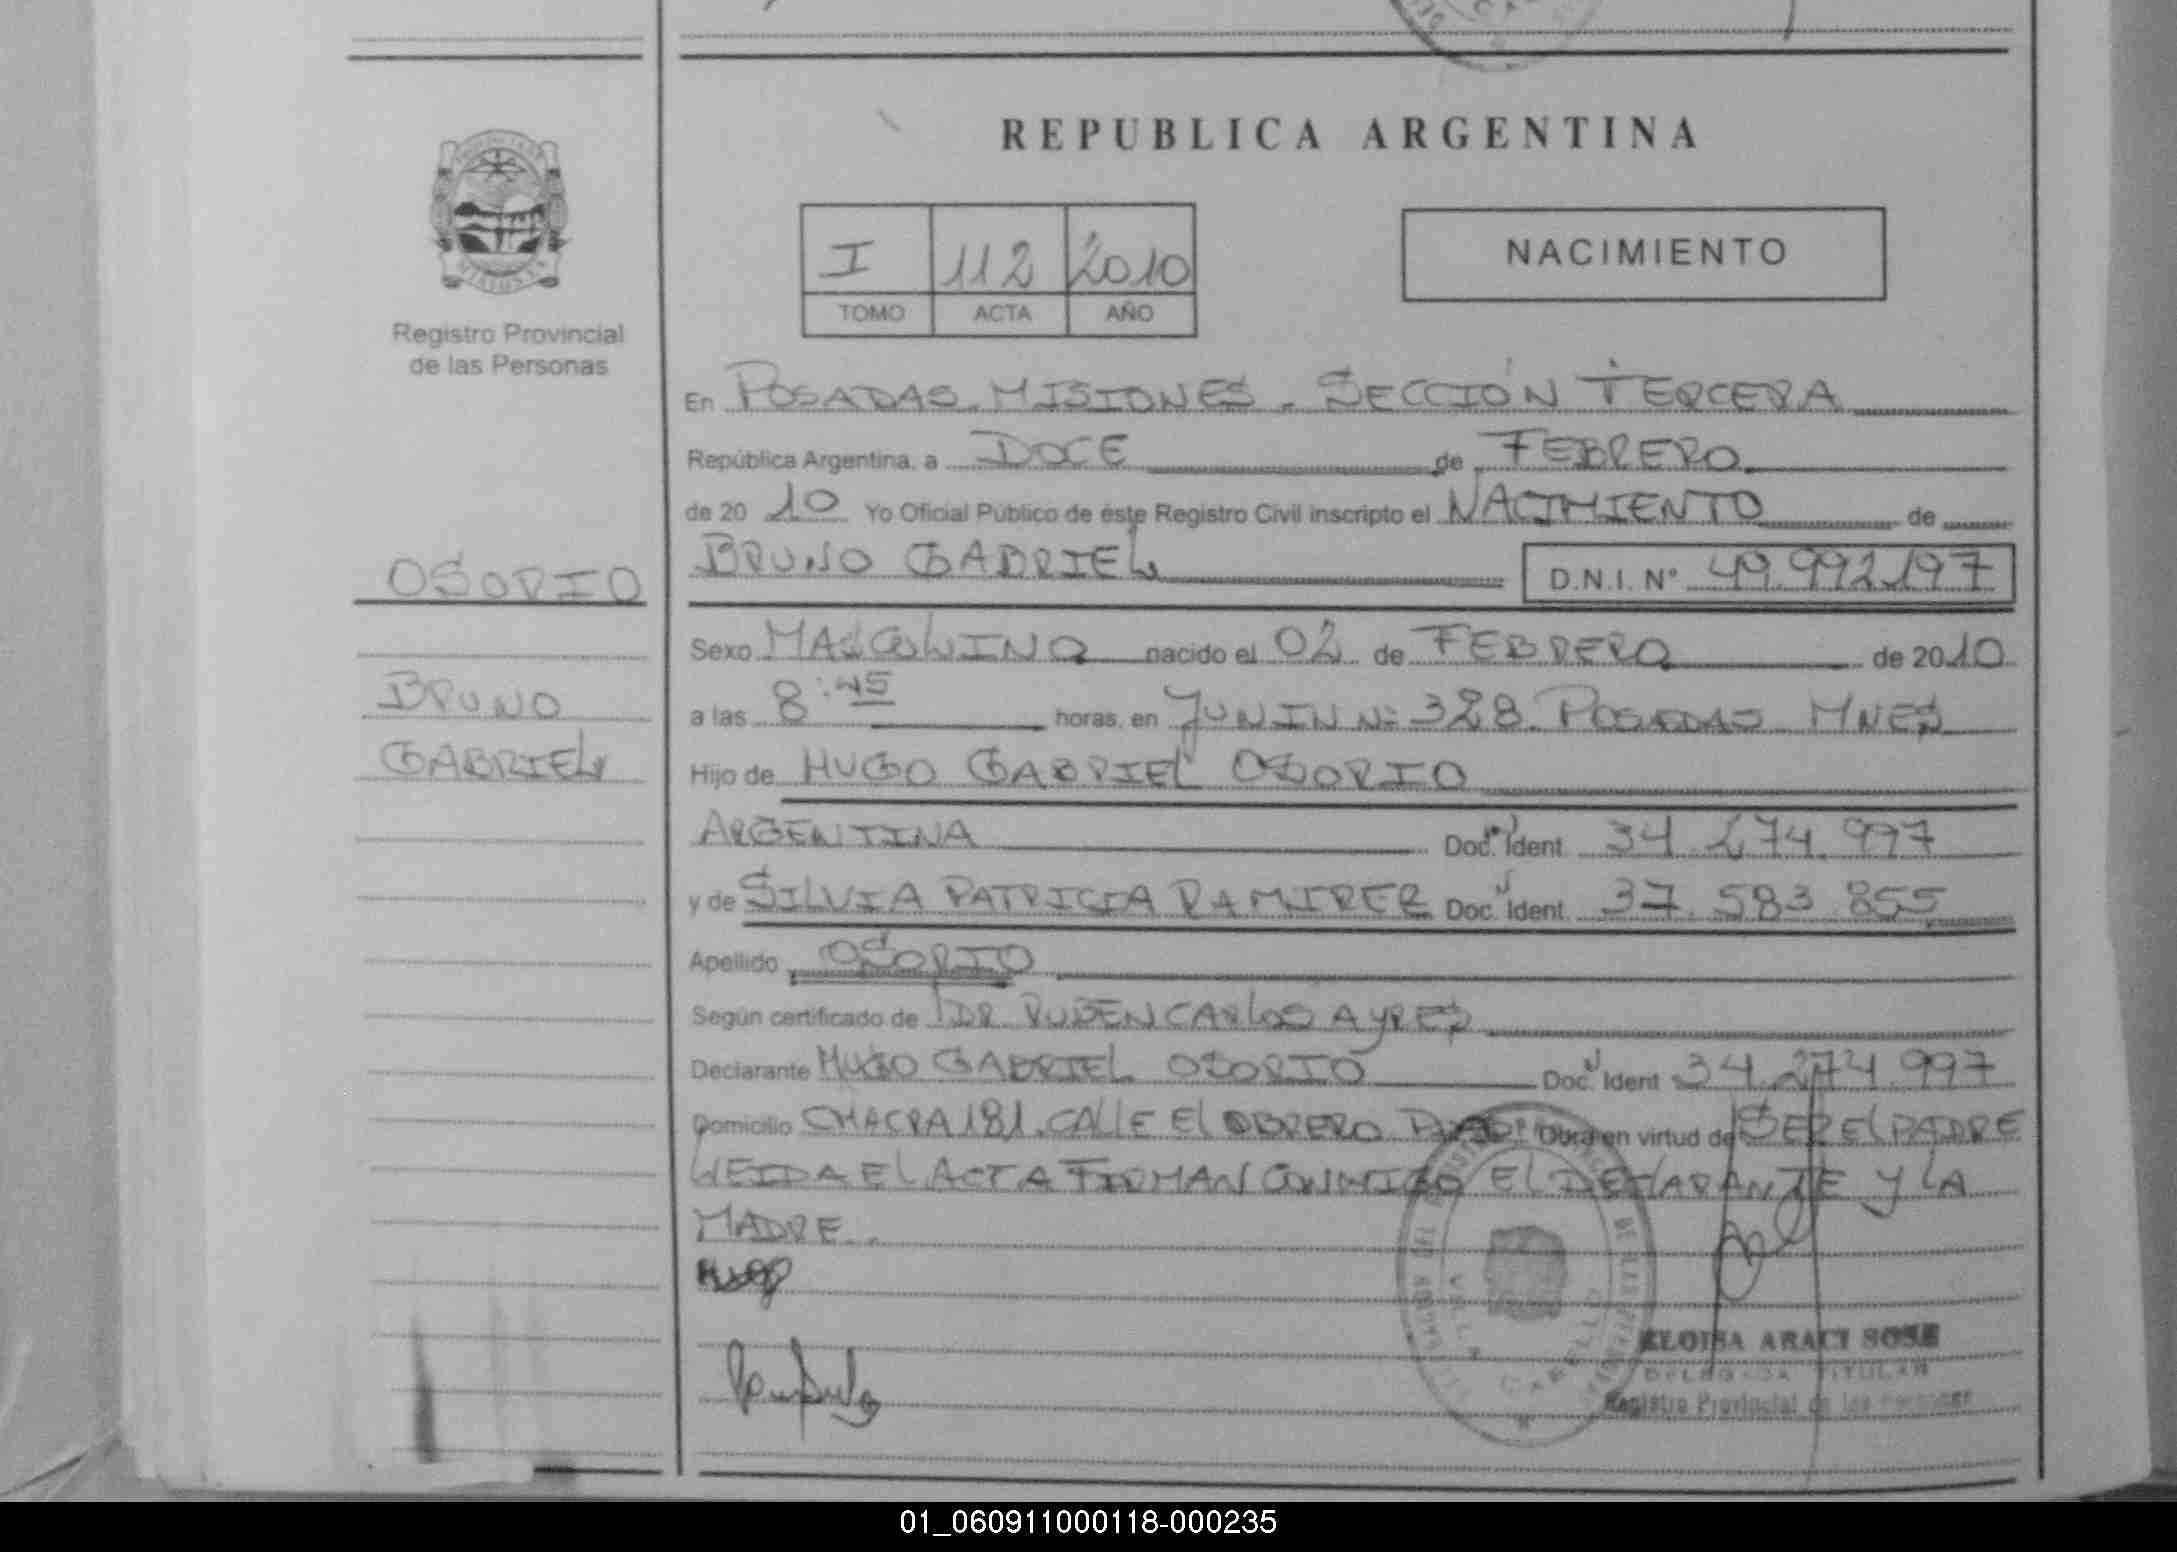 REPUBLICA ARGENTINA
Registro Provincial
de las Personas
I 112 2010
TOMO ACTA AÑO
NACIMIENTO
En POSADAS. MISIONES. SECCIÓN TERCERA
República Argentina, a DOCE de FEBRERO
de 20 10 Yo Oficial Público de éste Registro Civil inscripto el NACIMIENTO de
OSORIO
BRUNO GABRIEL D.N.I. Nº 49.992.197
Sexo MASCULINO nacido el 02 de FEBRERO de 2010
BRUNO
a las 8:45 horas, en JUNIN Nº 328. POSADAS MNES
GABRIEL
Hijo de HUGO GABRIEL OSORIO
ARGENTINA Doc. Ident 34.274.997
y de SILVIA PATRICIA RAMIREZ Doc. Ident. 37.583.855
Apellido OSORIO
Según certificado de DR RUBEN CARLOS AYRES
Declarante HUGO GABRIEL OSORIO Doc. Ident 34.274.997
Domicilio CHACRA 181. CALLE El OBRERO Obra en virtud de SER El PADRE
LEIDA El ACTA FIRMAN CONMIGO El DEClARANTE Y LA
MADRE.
Hugo
ELOISA ARACI SOSE
DELEGADA TITULAR
Registro Provincial de las Personas
01_060911000118-000235